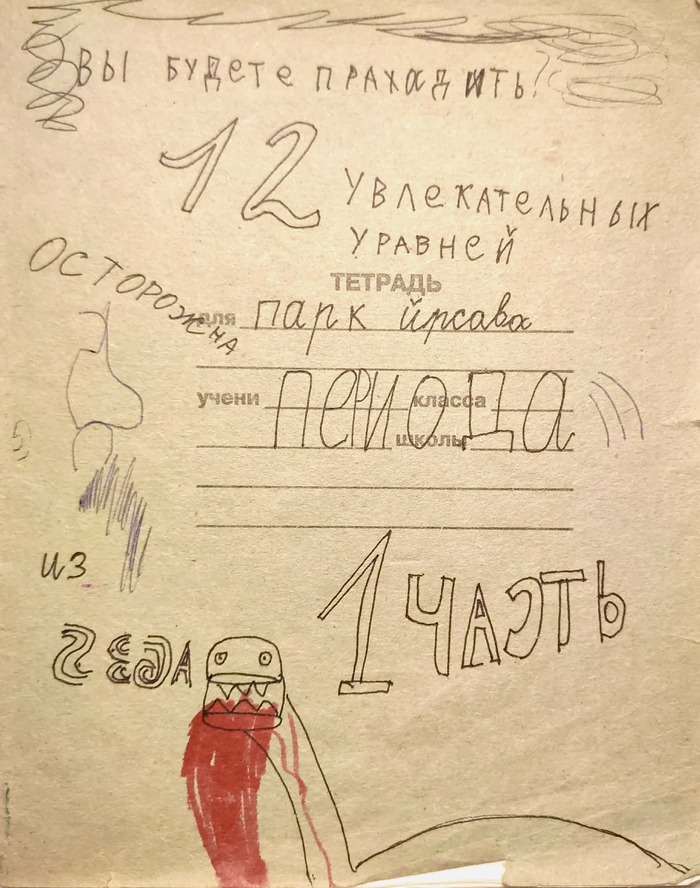 ВЫ БУДЕТЕ ПРАХАДИТЬ!
12 УВЛЕКАТЕЛЬНЫХ
УРАВНЕЙ
ОСТОРОЖНА
ТЕТРАДЬ
для парк йрсава
учени ПЕРИОДА класса
школы
ИЗ
1 ЧАСТЬ
SEGA